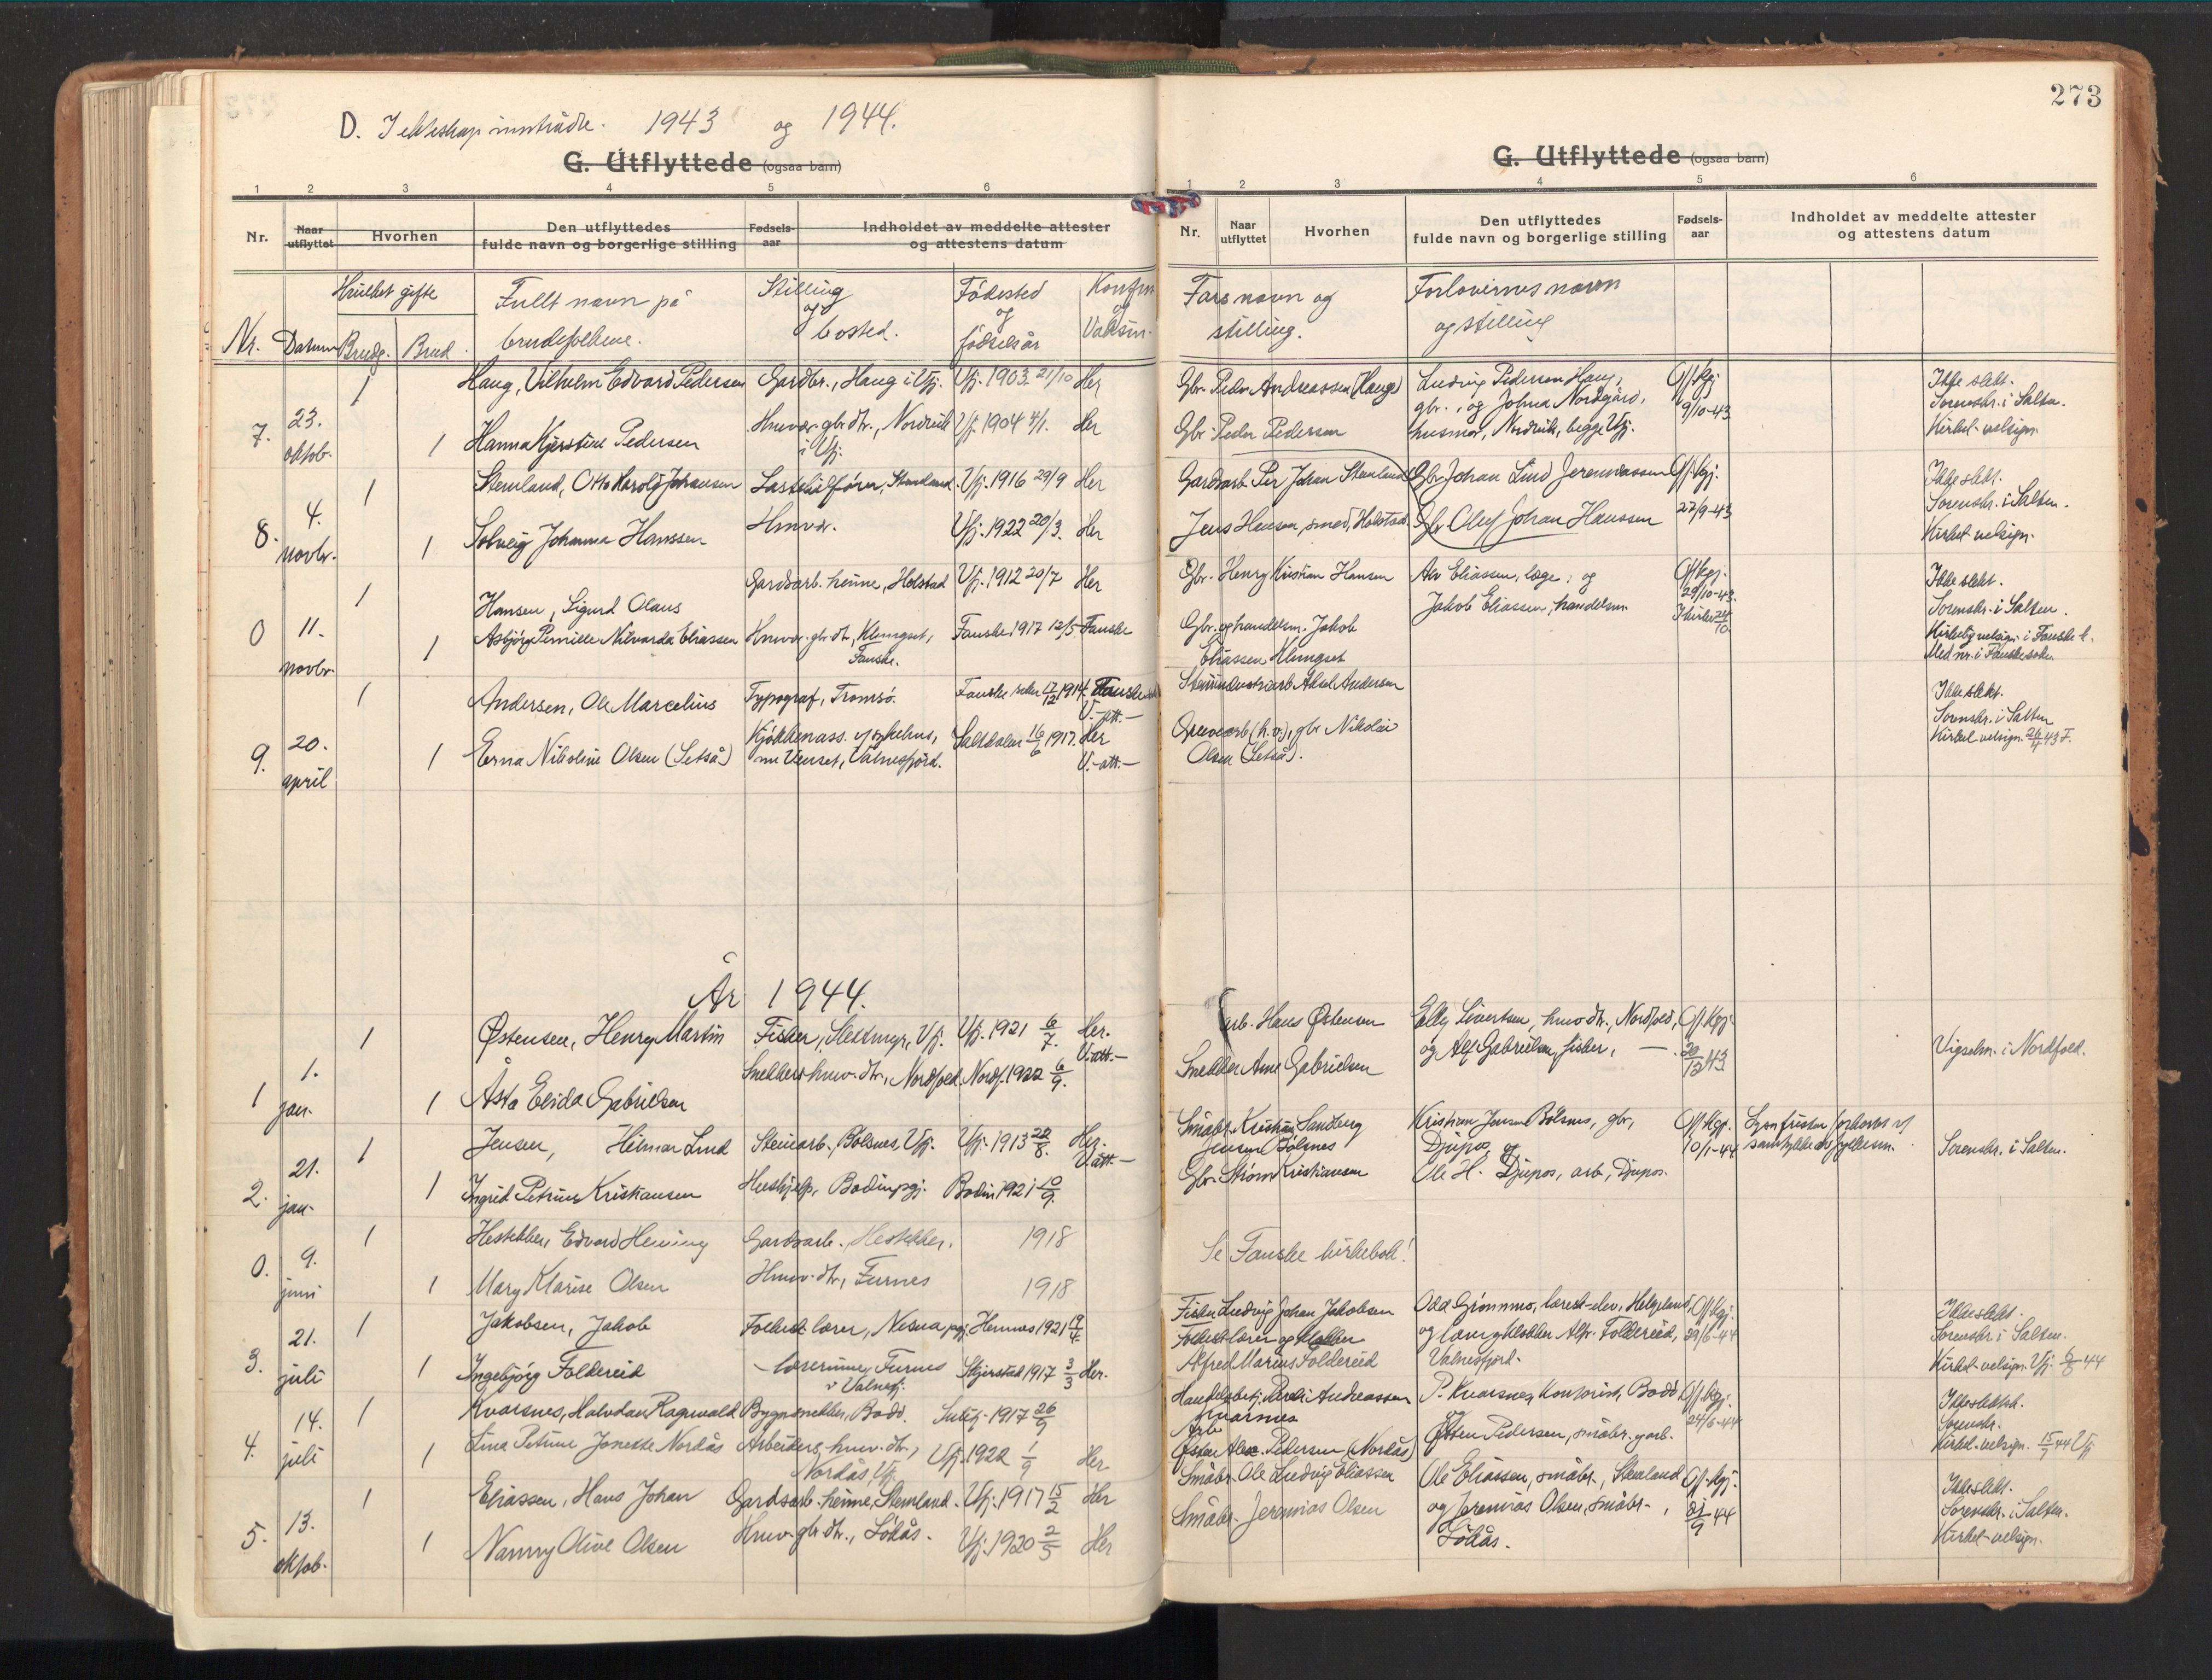 273
D. I ekteskap inntrådte. 1943 og 1944.
G. Utflyttede (ogsaa barn)
1 2 3 4 5 6
Nr. Naar utflyttet Hvorhen Den utflyttedes fulde navn og borgerlige stilling Fødsels-aar Indholdet av meddelte attester og attestens datum
Nr. Datum Hvilket gifte Brudg. Brud. Fullt navn på brudefolkene. Stilling og bosted. Fødested og fødselsår Konfirm. og Vaksin.
1 Haug, Vilhelm Edvard Pedersen Gardbr., Haug i Vfj. Vfj. 1903 21/10 Her
7. 23. oktob. 1 Hanna Kjerstine Pedersen Hmvær. gbr. dtr., Nordvik i Vfj. Vfj. 1904 4/1. Her
1 Stemland, Otto Harold Johansen Stemland Vfj. 1916 29/9 Her
8. 4. novbr. 1 Solveig Johanna Hanssen Hmvær. Vfj. 1922 20/3. Her
1 Hansen, Sigurd Olaus Gardsarb. heime, Holstad Vfj. 1912 20/7 Her
0 11. novbr. 1 Asbjørg Pernille Nilvarda Eliassen Hmvær. gbr. dtr., Klungset, Fauske. Fauske 1917 12/5 Fauske
1 Andersen, Ole Marcelius Typograf, Tromsø. Fauske 17/12 1914. Fauske V.-att.-
9. 20. april 1 Erna Nikoline Olsen (Setså) Kjøkkenass. v/sykehus, nu Venset, Valnesfjord. Saltdalen 16/6 1917. Her V.-att.-
År 1944.
1 Østensen, Henry Martin Fisker, Slettmyr, Vfj. Vfj. 1921 6/7. Her. V.att.-
1 1. jan. 1 Åsta Elida Gabrielsen Snekker hmv. dtr., Nordfold. Nordf. 1922 6/9.
1 Jensen, Hilmar Lind Steinarb., Bolsnes, Vfj. Vfj. 1913 22/8. Her. V.att.-
2. 21. jan. 1 Ingrid Petrine Kristiansen Hushjelp, Bodin pgj. Bodin 1921 10/9.
1 Hestekker, Edvard Hening Gardsarb. Hestekker. 1918
0. 9. juni 1 Mary Klarise Olsen Hmv. dtr., Furnes 1918
1 Jakobsen, Jakob lærer, Nesna pgj. Hemnes 1921 19/4.
3. 21. juli 1 Ingebjørg Foldereid - lærerinne, Furnes i Valnesfj. Skjerstad 1917 3/3 Her.
1 Kvarsnes, Halvdan Ragnvald Bygnsnekker, Bodø. 1917 26/9
4. 14. juli 1 Lina Petrine Jonette Nordås Arbeiders hmv. dtr., Nordås, Vfj. Vfj. 1922 1/9 Her
1 Eliassen, Hans Johan Gardsarb. heime, Stemland. Vfj. 1917 15/2 Her
5. 13. oktob. 1 Nanny Olive Olsen Hmv. gbr. dtr., Løkås. Vfj. 1920 2/5 Her
G. Utflyttede (ogsaa barn)
1 2 3 4 5 6
Nr. Naar utflyttet Hvorhen Den utflyttedes fulde navn og borgerlige stilling Fødsels-aar Indholdet av meddelte attester og attestens datum
Fars navn og stilling. Forlovernes navn og stilling
Gbr. Peder Andreassen (Haug) Ludvig Pedersen Haug, gbr., og Johna Nordgård, husmor, Nordvik, begge Vfj. Off. kgj. 9/10-43 Ikke slekt. Sorenskr. i Salten. Kirkel. velsign.
Gbr. Peder Pedersen
Gardsarb. Per Johan Stemland Gbr. Johan Lind Jeremiassen Off. kgj. 27/9-43 Ikke slekt. Sorenskr. i Salten. Kirkel. velsign.
Jens Hansen, smed, Holstad. Gbr. Oluf Johan Hanssen
Gbr. Henry Kristian Hansen Alv Eliassen, læge, og Jakob Eliassen, handelsm. Off. kgj. 29/10-43. Ikke slekt. Sorenskr. i Salten. Kirkelig velsign. i Fauske k. Med nr. i Fauske sokn.
Gbr. og handelsm. Jakob Eliassen Klungset
Steinindustriarb. Aksel Andersen Ikke slekt. Sorenskr. i Salten Kirkel. velsign. 26/4 43 F.
Gruvearb. (h.v.), gbr. Nikolai Olsen (Setså).
arb. Hans Østensen Elly Sivertsen, hmv. dtr., Nordfold, og Alf Gabrielsen, fisker, -. Off. kgj. 20/12 43 Vigselm. i Nordfold.
Snekker Arne Gabrielsen
Småbr. Kristian Sandberg Jensen Bolsnes Kristian Jensen Bolsnes, gbr, Djupos, og Ole H. Djupos, arb., Djupos. Off. kgj. 10/1-44 Lysn. fristen forkortet v/ samtykke av fylkesm. Sorenskr. i Salten.
Gbr. Strøm Kristiansen
Se Fauske kirkebok!
Fisker Ludvig Johan Jakobsen Odd Grønmo, lærersk. elev, Helgeland, og lærer og klokker Alfr. Foldereid, Valnesfjord. Off. kgj. 29/6-44 Ikke slekt. Sorenskr. i Salten. Kirkel. velsign. Vfj. 6/8 44
lærer og klokker Alfred Marius Foldereid
Andreassen Kvarsnes P. Kvarsnes, Kontorist, Bodø og Østen Pedersen, småbr. g.arb. Off. kgj. 24/6-44 Ikke slektsk. Sorenskr. Kirkel. velsign. 15/7 44 Vfj
Arb. Østen Alex. Pedersen (Nordås)
Småbr. Ole Ludvig Eliassen Ole Eliassen, småbr., Stemland og Jeremias Olsen, småbr., Løkås. Off. kgj. 21/9 44 Ikke slekt. Sorenskr. i Salten. Kirkel. velsign.
Småbr. Jeremias Olsen